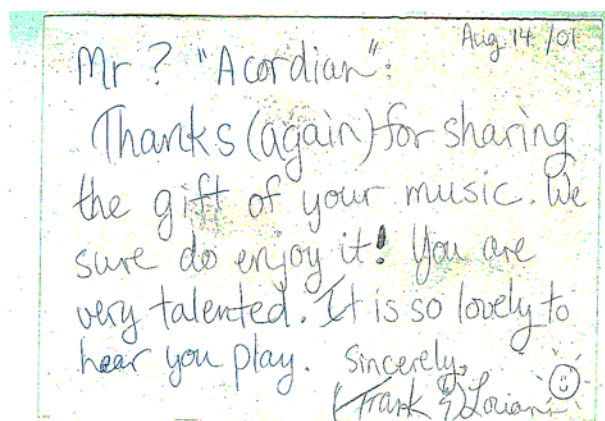 Aug 14 /01
Mr ? "Acordian":
Thanks (again) for sharing
the gift of your music. We
sure do enjoy it! You are
very talented. It is so lovely to
hear you play. Sincerely,
Frank &